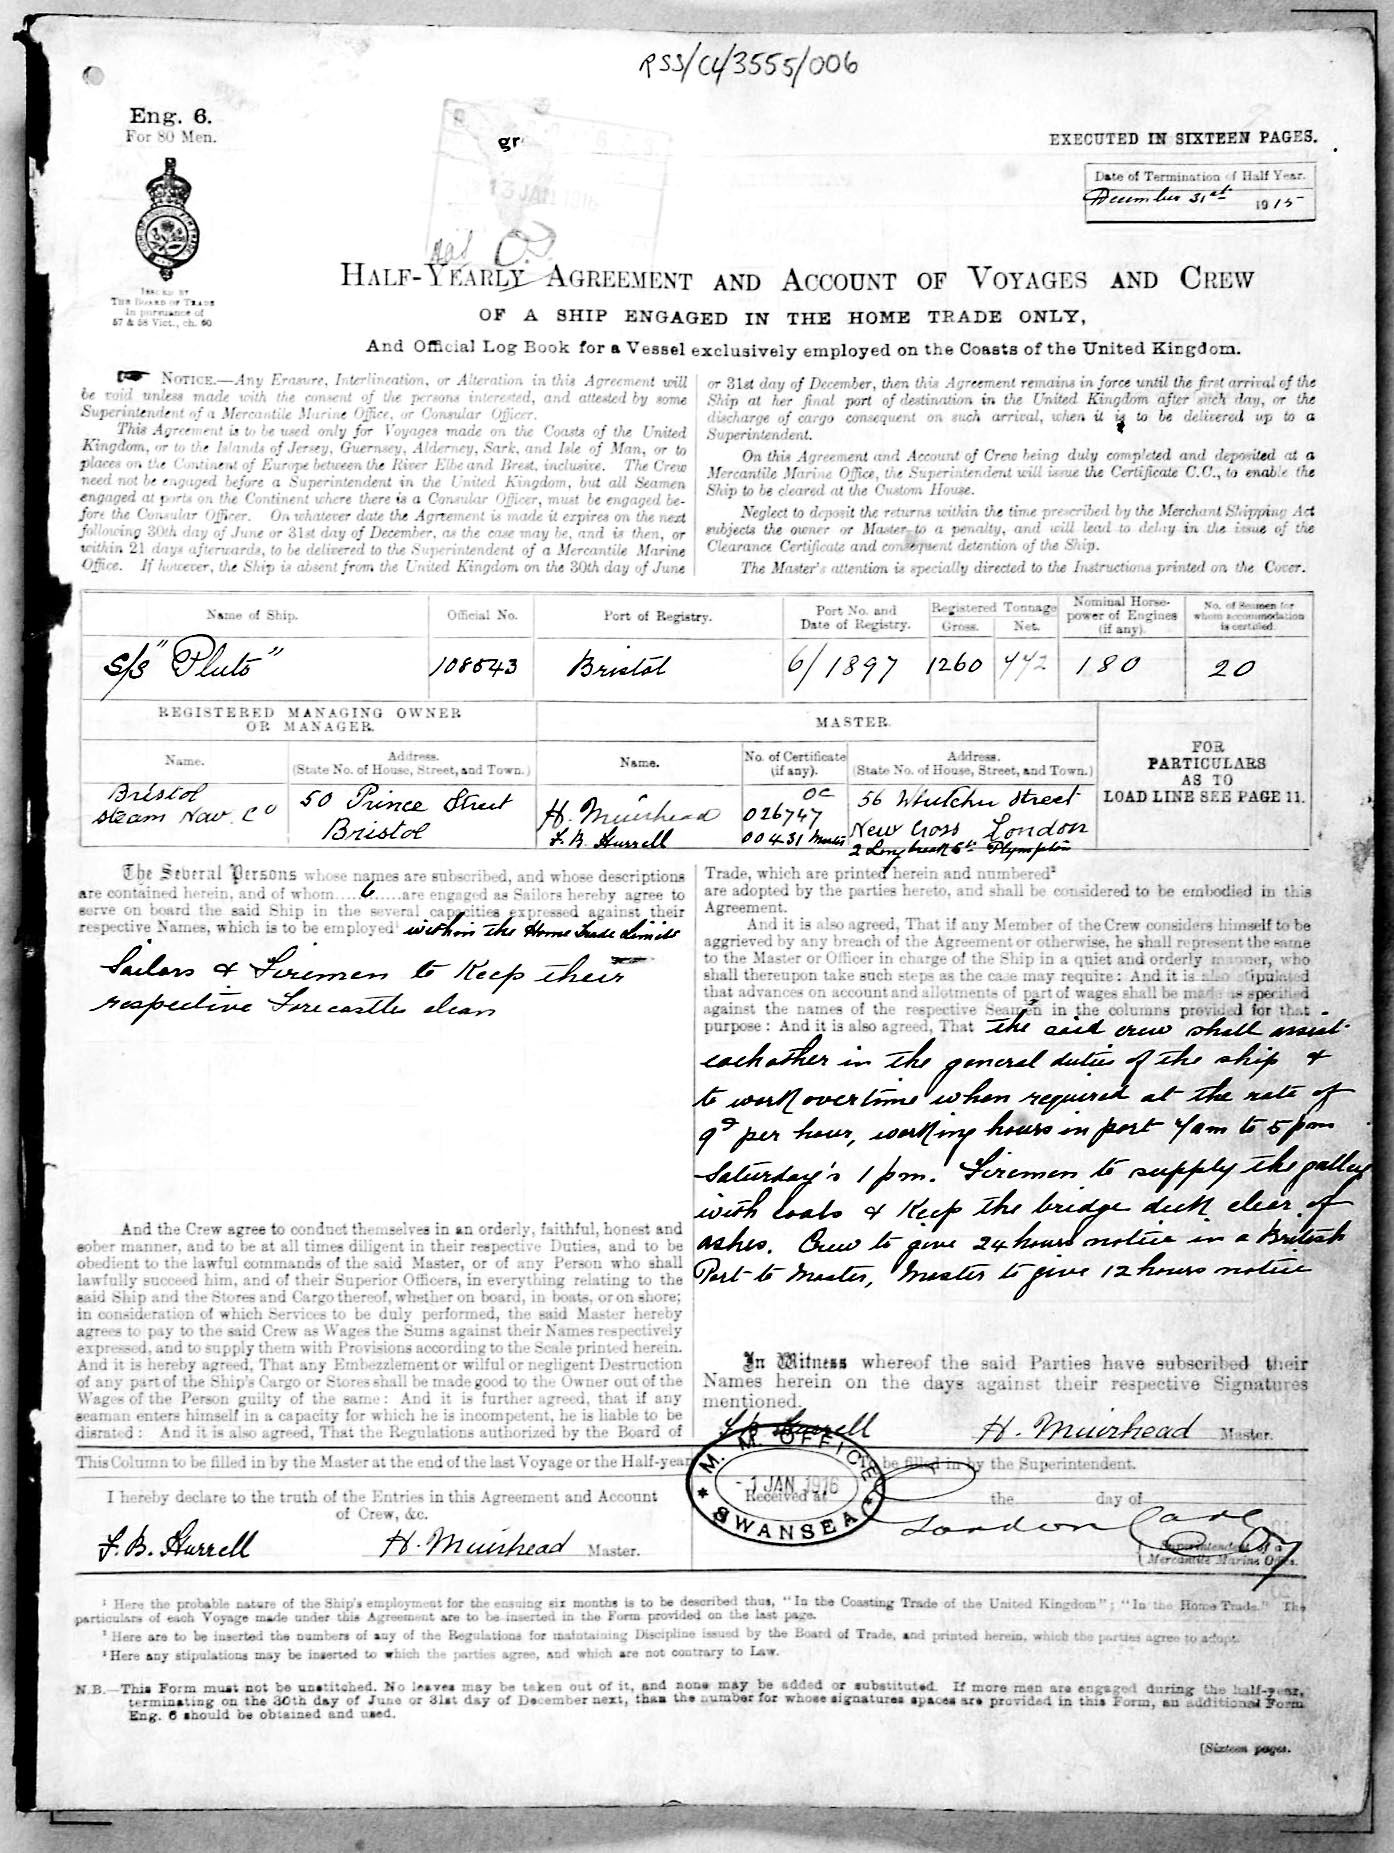 RSS/CL/3555/006
Eng. 6.
For 80 Men.
gr
13 JAN 1916
EXECUTED IN SIXTEEN PAGES.
Date of Termination of Half Year.
December 31st 1915
ISSUED BY
THE BOARD OF TRADE
In pursuance of
57 & 58 Vict., ch. 60
HALF-YEARLY AGREEMENT AND ACCOUNT OF VOYAGES AND CREW
OF A SHIP ENGAGED IN THE HOME TRADE ONLY,
And Official Log Book for a Vessel exclusively employed on the Coasts of the United Kingdom.
NOTICE.—Any Erasure, Interlineation, or Alteration in this Agreement will
be void unless made with the consent of the persons interested, and attested by some
Superintendent of a Mercantile Marine Office, or Consular Officer.
This Agreement is to be used only for Voyages made on the Coasts of the United
Kingdom, or to the Islands of Jersey, Guernsey, Alderney, Sark, and Isle of Man, or to
places on the Continent of Europe between the River Elbe and Brest, inclusive. The Crew
need not be engaged before a Superintendent in the United Kingdom, but all Seamen
engaged at ports on the Continent where there is a Consular Officer, must be engaged be-
fore the Consular Officer. On whatever date the Agreement is made it expires on the next
following 30th day of June or 31st day of December, as the case may be, and is then, or
within 21 days afterwards, to be delivered to the Superintendent of a Mercantile Marine
Office. If however, the Ship is absent from the United Kingdom on the 30th day of June
or 31st day of December, then this Agreement remains in force until the first arrival of the
Ship at her final port of destination in the United Kingdom after such day, or the
discharge of cargo consequent on such arrival, when it is to be delivered up to a
Superintendent.
On this Agreement and Account of Crew being duly completed and deposited at a
Mercantile Marine Office, the Superintendent will issue the Certificate C.C., to enable the
Ship to be cleared at the Custom House.
Neglect to deposit the returns within the time prescribed by the Merchant Shipping Act
subjects the owner or Master to a penalty, and will lead to delay in the issue of the
Clearance Certificate and consequent detention of the Ship.
The Master's attention is specially directed to the Instructions printed on the Cover.
Name of Ship. Official No. Port of Registry. Port No. and Date of Registry. Registered Tonnage Gross. Net. Nominal Horse-power of Engines (if any). No. of Seamen for whom accommodation is certified.
S/S "Pluto" 108543 Bristol 6/1897 1260 442 180 20
REGISTERED MANAGING OWNER
OR MANAGER.
MASTER.
FOR
PARTICULARS
AS TO
LOAD LINE SEE PAGE 11.
Name. Address. (State No. of House, Street, and Town.) Name. No. of Certificate (if any). Address. (State No. of House, Street, and Town.)
Bristol Steam Nav. Co 50 Prince Street Bristol
H. Muirhead OC 026747 56 Street New Cross London
F. B. Hurrell 00431 2 Longbrook St. Plympton
The Several Persons whose names are subscribed, and whose descriptions
are contained herein, and of whom 6 are engaged as Sailors hereby agree to
serve on board the said Ship in the several capacities expressed against their
respective Names, which is to be employed¹ within the Home Trade Limits
Sailors & Firemen to Keep their
respective Forecastles clean
And the Crew agree to conduct themselves in an orderly, faithful, honest and
sober manner, and to be at all times diligent in their respective Duties, and to be
obedient to the lawful commands of the said Master, or of any Person who shall
lawfully succeed him, and of their Superior Officers, in everything relating to the
said Ship and the Stores and Cargo thereof, whether on board, in boats, or on shore;
in consideration of which Services to be duly performed, the said Master hereby
agrees to pay to the said Crew as Wages the Sums against their Names respectively
expressed, and to supply them with Provisions according to the Scale printed herein.
And it is hereby agreed, That any Embezzlement or wilful or negligent Destruction
of any part of the Ship's Cargo or Stores shall be made good to the Owner out of the
Wages of the Person guilty of the same: And it is further agreed, that if any
seaman enters himself in a capacity for which he is incompetent, he is liable to be
disrated: And it is also agreed, That the Regulations authorized by the Board of
Trade, which are printed herein and numbered²
are adopted by the parties hereto, and shall be considered to be embodied in this
Agreement.
And it is also agreed, That if any Member of the Crew considers himself to be
aggrieved by any breach of the Agreement or otherwise, he shall represent the same
to the Master or Officer in charge of the Ship in a quiet and orderly manner, who
shall thereupon take such steps as the case may require: And it is also stipulated
that advances on account and allotments of part of wages shall be made as specified
against the names of the respective Seamen in the columns provided for that
purpose: And it is also agreed, That the said crew shall assist
eachother in the general duties of the ship &
to work overtime when required at the rate of
9d per hour, working hours in port 7am to 5pm
Saturday's 1 pm. Firemen to supply the galley
with coals & Keep the bridge deck clear of
ashes. Crew to give 24 hours notice in a British
Port to Master, Master to give 12 hours notice
In Witness whereof the said Parties have subscribed their
Names herein on the days against their respective Signatures
mentioned.
F B Hurrell H. Muirhead Master.
This Column to be filled in by the Master at the end of the last Voyage or the Half-year
I hereby declare to the truth of the Entries in this Agreement and Account
of Crew, &c.
F. B. Hurrell H. Muirhead Master.
be filled in by the Superintendent.
M. M. OFFICE
-1 JAN 1916
SWANSEA
Received at the day of
Superintendent of a
Mercantile Marine Office.
¹ Here the probable nature of the Ship's employment for the ensuing six months is to be described thus, "In the Coasting Trade of the United Kingdom"; "In the Home Trade." The
particulars of each Voyage made under this Agreement are to be inserted in the Form provided on the last page.
² Here are to be inserted the numbers of any of the Regulations for maintaining Discipline issued by the Board of Trade, and printed herein, which the parties agree to adopt.
³ Here any stipulations may be inserted to which the parties agree, and which are not contrary to Law.
N.B.—This Form must not be unstitched. No leaves may be taken out of it, and none may be added or substituted. If more men are engaged during the half-year,
terminating on the 30th day of June or 31st day of December next, than the number for whose signatures spaces are provided in this Form, an additional Form
Eng. 6 should be obtained and used.
[Sixteen pages.